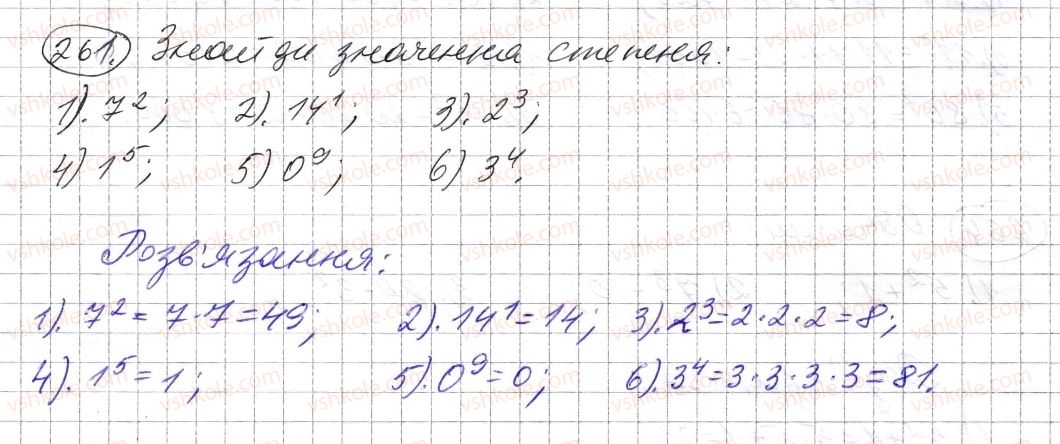 261. Знайди значення степеня:
1). 7²; 2). 14¹; 3). 2³;
4) 1⁵; 5) 0⁹; 6) 3⁴.
Розв'язання:
1). 7² = 7·7 = 49; 2). 14¹ = 14; 3). 2³ = 2·2·2 = 8;
4). 1⁵ = 1; 5). 0⁹ = 0; 6). 3⁴ = 3·3·3·3 = 81.